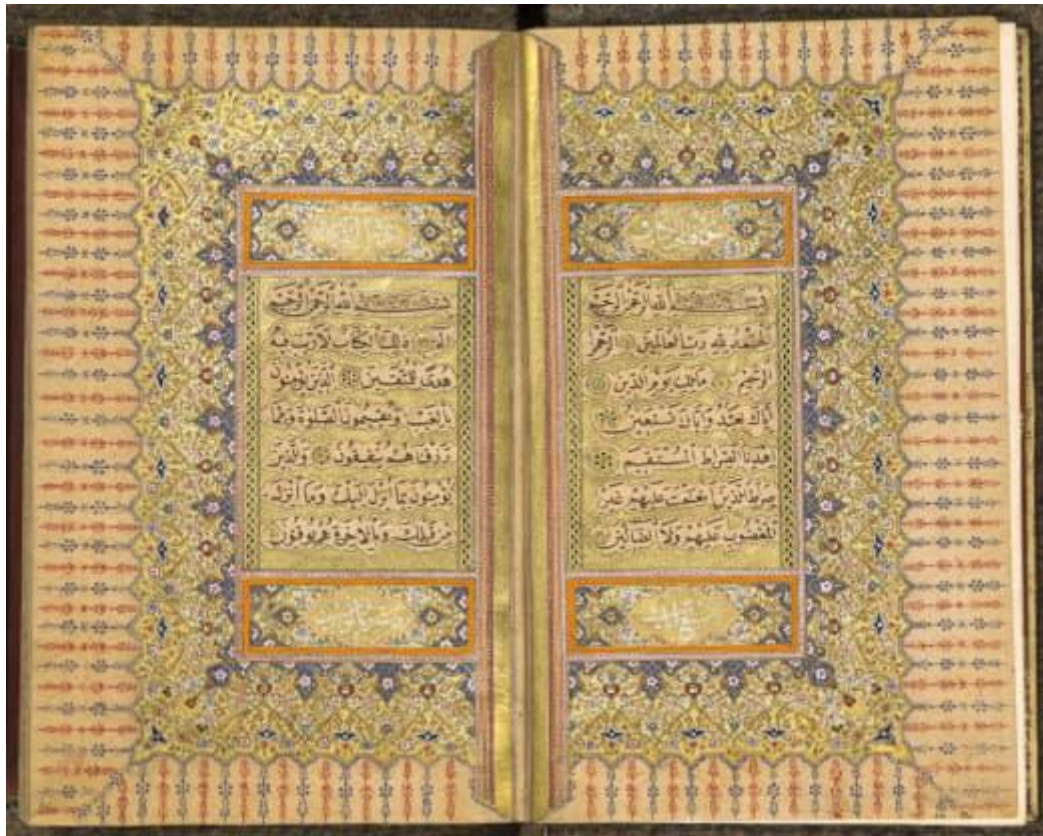 بِسْمِ اللهِ الرَّحْمٰنِ الرَّحِيمِ
اَلْحَمْدُ لِلّٰهِ رَبِّ الْعَالَمِينَ الرَّحْمٰنِ
الرَّحِيمِ مَالِكِ يَوْمِ الدِّينِ
اِيَّاكَ نَعْبُدُ وَاِيَّاكَ نَسْتَعِينُ
اِهْدِنَا الصِّرَاطَ الْمُسْتَقِيمَ
صِرَاطَ الَّذِينَ اَنْعَمْتَ عَلَيْهِمْ غَيْرِ
الْمَغْضُوبِ عَلَيْهِمْ وَلَا الضَّالِّينَ
بِسْمِ اللهِ الرَّحْمٰنِ الرَّحِيمِ
الٓمٓ ذٰلِكَ الْكِتَابُ لَا رَيْبَ فِيهِ
هُدًى لِلْمُتَّقِينَ الَّذِينَ يُؤْمِنُونَ
بِالْغَيْبِ وَيُقِيمُونَ الصَّلٰوةَ وَمِمَّا
رَزَقْنَاهُمْ يُنْفِقُونَ وَالَّذِينَ
يُؤْمِنُونَ بِمَا اُنْزِلَ اِلَيْكَ وَمَا اُنْزِلَ
مِنْ قَبْلِكَ وَبِالْاٰخِرَةِ هُمْ يُوقِنُونَ